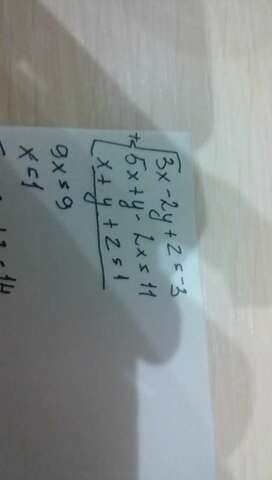 3x - 2y + z = -3
5x + y - 2x = 11
x + y + z = 1
9x = 9
x = 1